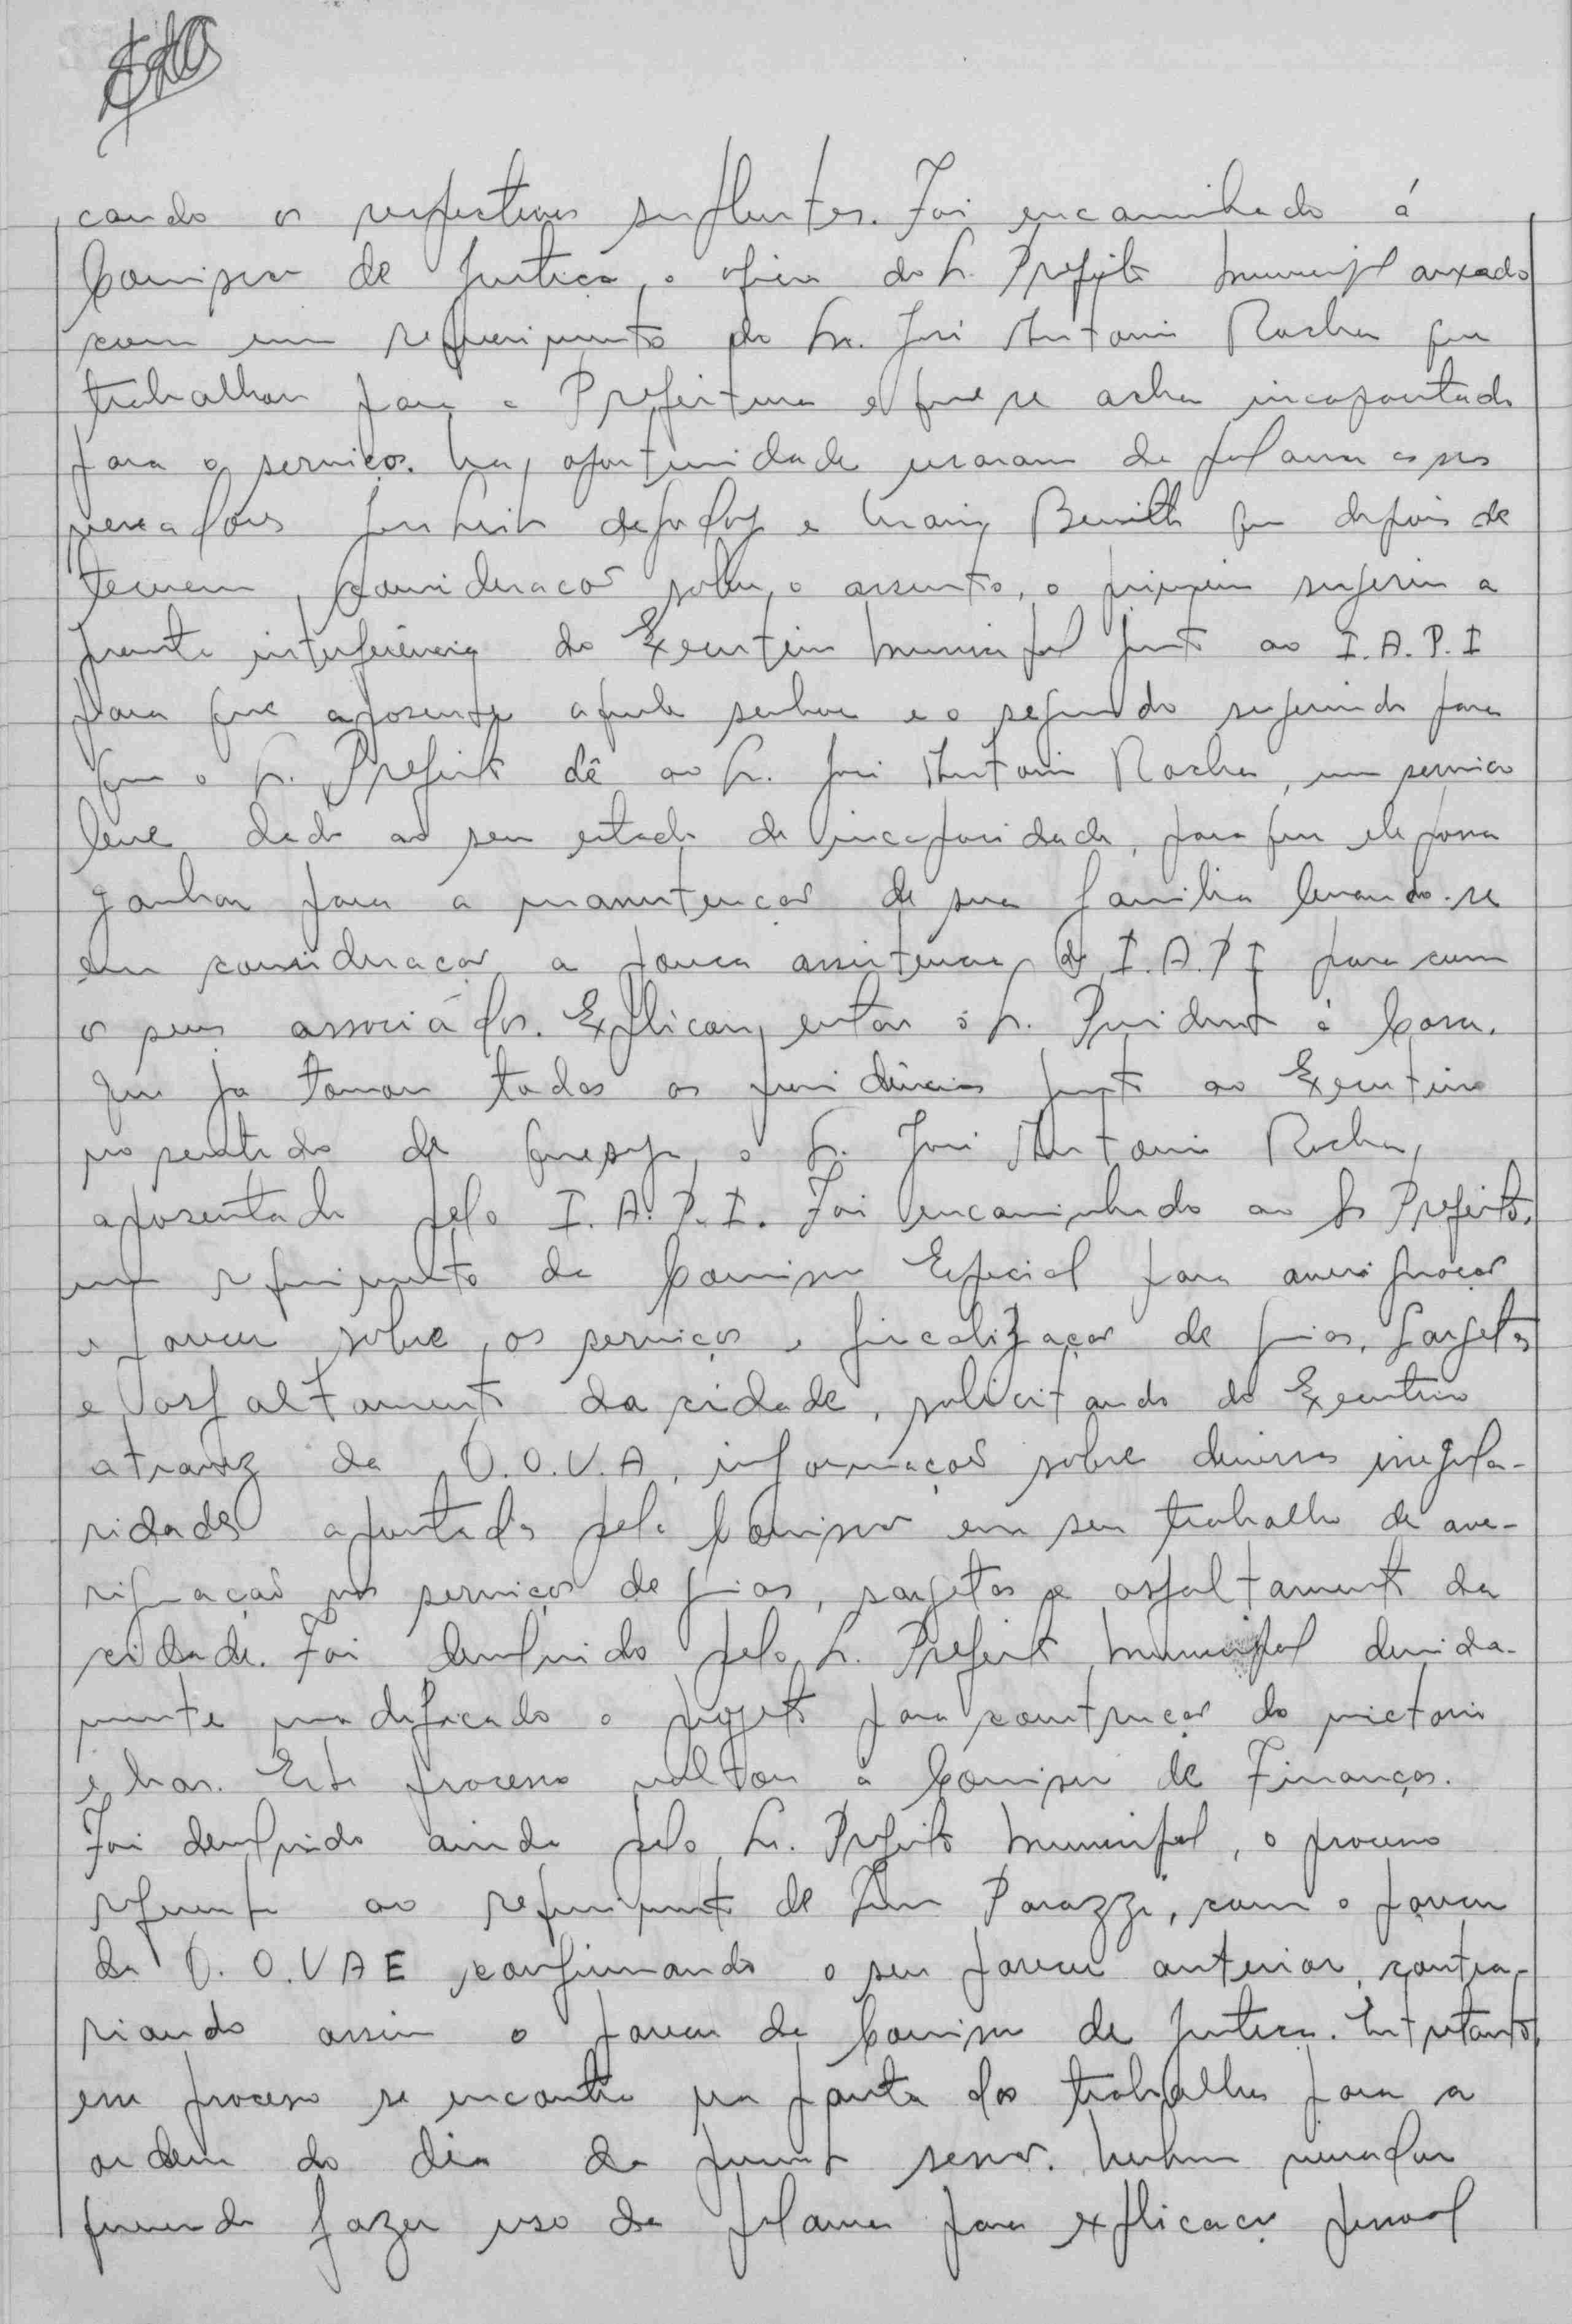 cando os respectivos suplentes. Foi encaminhado á
Comissão de Justiça, o oficio do Sr. Prefeito Municipal anexado
com um requerimento do Sr. José Antonio Rocha que
trabalhou para a Prefeitura e que se acha incapacitado
para o serviço. Na oportunidade usaram da palavra os srs
vereadores e Mario Benith que depois de
tecerem consideracoes sobre o assunto, o primeiro sugeriu a
pronta interferência do Executivo Municipal junto ao I.A.P.I
para que aposente aquele senhor e o segundo sugerindo para
que o Sr. Prefeito dê ao Sr. José Antonio Rocha, um serviço
leve dado ao seu estado de incapacidade, para que ele possa
ganhar para a manutencao de sua familia levando-se
em consideracao a pouca assistencia do I.A.P.I para com
os seus associádos. Explicou, entao o Sr. Presidente á Casa,
que ja tomou todas as providências junto ao Executivo
no sentido de que seja, o Sr. José Antonio Rocha,
aposentado pelo I.A.P.I. Foi encaminhado ao Sr Prefeito,
um requerimento da Comissão Especial para averiguaçao
e parecer sobre os serviços e fiscalizaçao de guias, sargetas
e asfaltamento da cidade, solicitando do Executivo
atravez da D.O.V.A, informaçoes sobre diversas irregula-
ridades apontadas pela Comissão em seu trabalho de ave-
riguaçao nos serviços de guias, sargetas e asfaltamento da
cidade. Foi devolvido pelo Sr. Prefeito Municipal devida-
mente modificado o projeto para construçao do mictorio
e bar. Este processo voltou á Comissão de Finanças.
Foi devolvido ainda pelo Sr. Prefeito Municipal, o processo
referente ao requerimento de Parazzi, com o parecer
da D.O.VAE confirmando o seu parecer anterior, contra-
riando assim o parecer da Comissão de Justiça. Entretanto,
esse processo se encontra na pauta dos trabalhos para a
ordem do dia da presente sessao. Nenhum vereador
querendo fazer uso da palavra para explicaçao pessoal